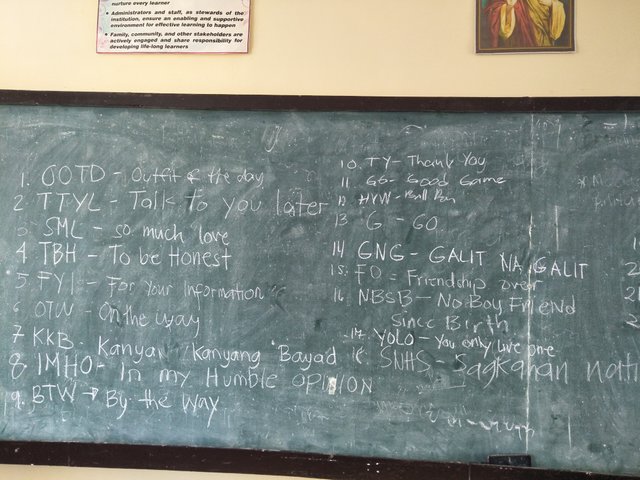 nurture every learner
• Administrators and staff, as stewards of the
institution, ensure an enabling and supportive
environment for effective learning to happen
• Family, community, and other stakeholders are
actively engaged and share responsibility for
developing life-long learners
1. OOTD - Outfit of the day
2. TTYL - Talk To you later
3 SML - so much love
4 TBH - To be Honest
5. FYI - For Your Information
6 OTW - On the way
7 KKB - Kanya Kanyang Bayad
8. IMHO - In my Humble OPINION
9. BTW → By the way
10. TY - Thank You
11 GG - Good Game
12 HYW -
13 G - GO
14 GNG - GALIT NA GALIT
15. FO = Friendship over
16. NBSB - No Boy Friend
Since Birth
17. YOLO - you only live one
SNHS - Sagkahan nati